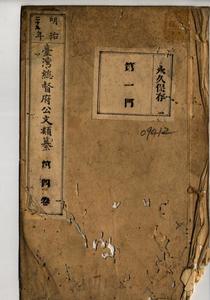 明治
二十九年
臺灣總督府公文類纂
第四卷
永久保存
第一門
09412